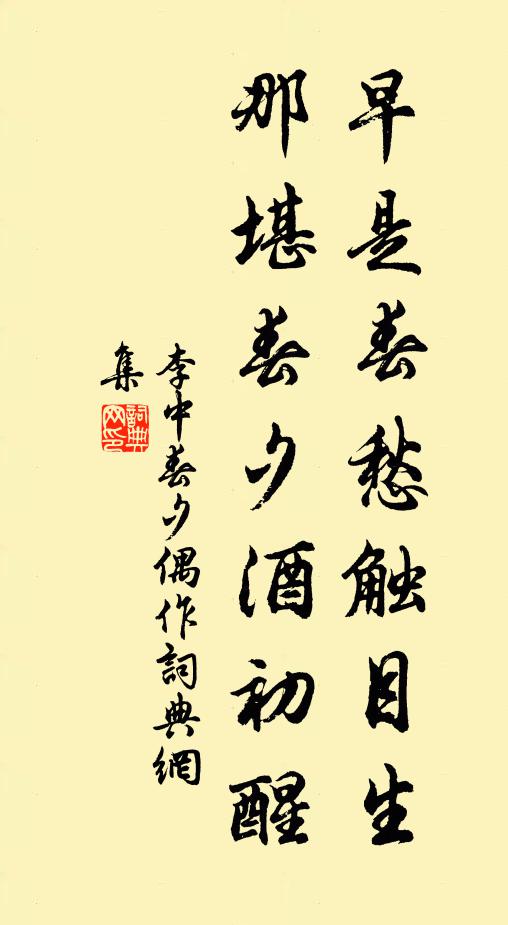 早是春愁触目生
那堪春夕酒初醒
李中春夕偶作詞典網
集
詞典
网印